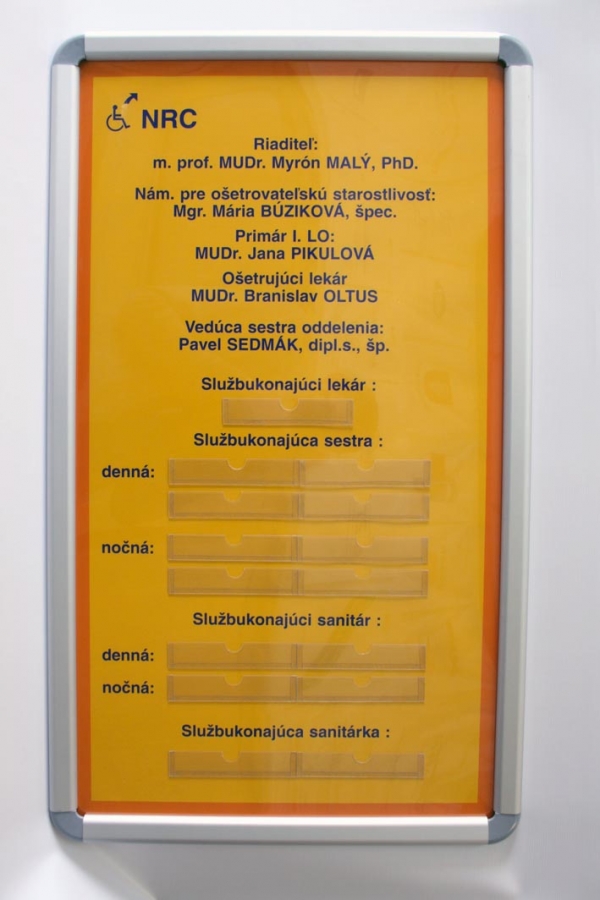 NRC
Riaditeľ:
m. prof. MUDr. Myrón MALÝ, PhD.
Nám. pre ošetrovateľskú starostlivosť:
Mgr. Mária BÚZIKOVÁ, špec.
Primár I. LO:
MUDr. Jana PIKULOVÁ
Ošetrujúci lekár
MUDr. Branislav OLTUS
Vedúca sestra oddelenia:
Pavel SEDMÁK, dipl.s., šp.
Službukonajúci lekár :
Službukonajúca sestra :
denná:
nočná:
Službukonajúci sanitár :
denná:
nočná:
Službukonajúca sanitárka :